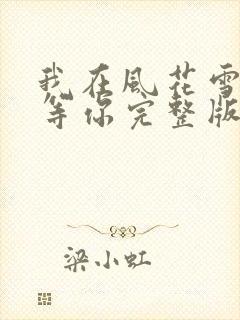 我在風花雪
等你完整版
梁小虹